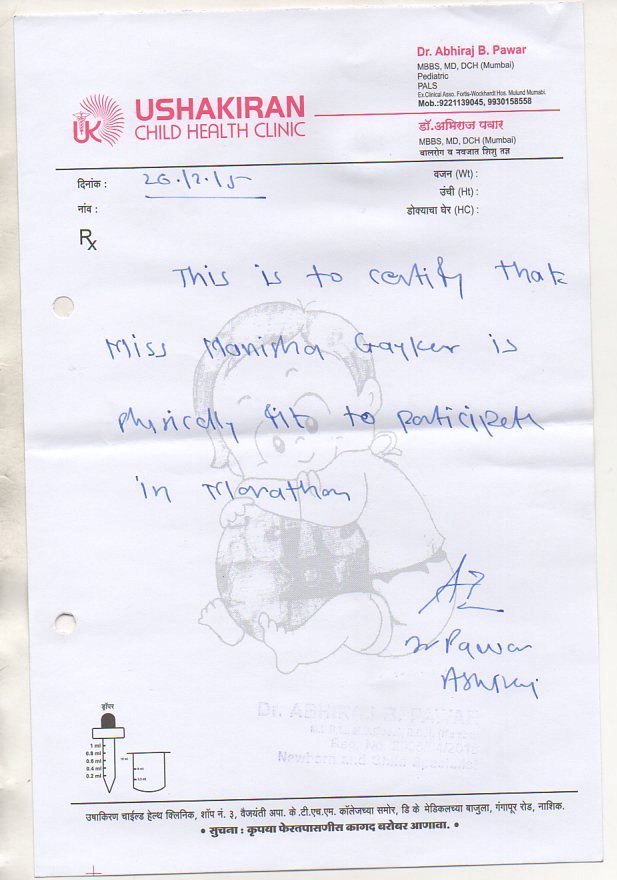 Dr. Abhiraj B. Pawar
MBBS, MD, DCH (Mumbai)
Pediatric
PALS
Ex.Clinical Asso. Fortis-Wockhardt Hos. Mulund Mumabi.
Mob.:9221139045, 9930158558
UK
USHAKIRAN
CHILD HEALTH CLINIC
डॉ.अभिराज पवार
MBBS, MD, DCH (Mumbai)
बालरोग व नवजात शिशु तज्ञ
दिनांक :
वजन (Wt) :
उंची (Ht) :
नांव :
डोक्याचा घेर (HC) :
Rx
This is to certify that
Miss Manisha Gayker is
physically fit to participate
in Marathon
Dr Pawar
Abhiraj
Dr. ABHIRAJ B. PAWAR
Newborn and Child Specialist
ड्रॉपर
1 ml
0.8 ml
0.6 ml
0.4 ml
0.2 ml
उषाकिरण चाईल्ड हेल्थ क्लिनिक, शॉप नं. ३, वैजयंती अपा. के .टी.एच.एम. कॉलेजच्या समोर, डि के मेडिकलच्या बाजुला, गंगापूर रोड, नाशिक.
• सुचना : कृपया फेरतपासणीस कागद बरोबर आणावा. •